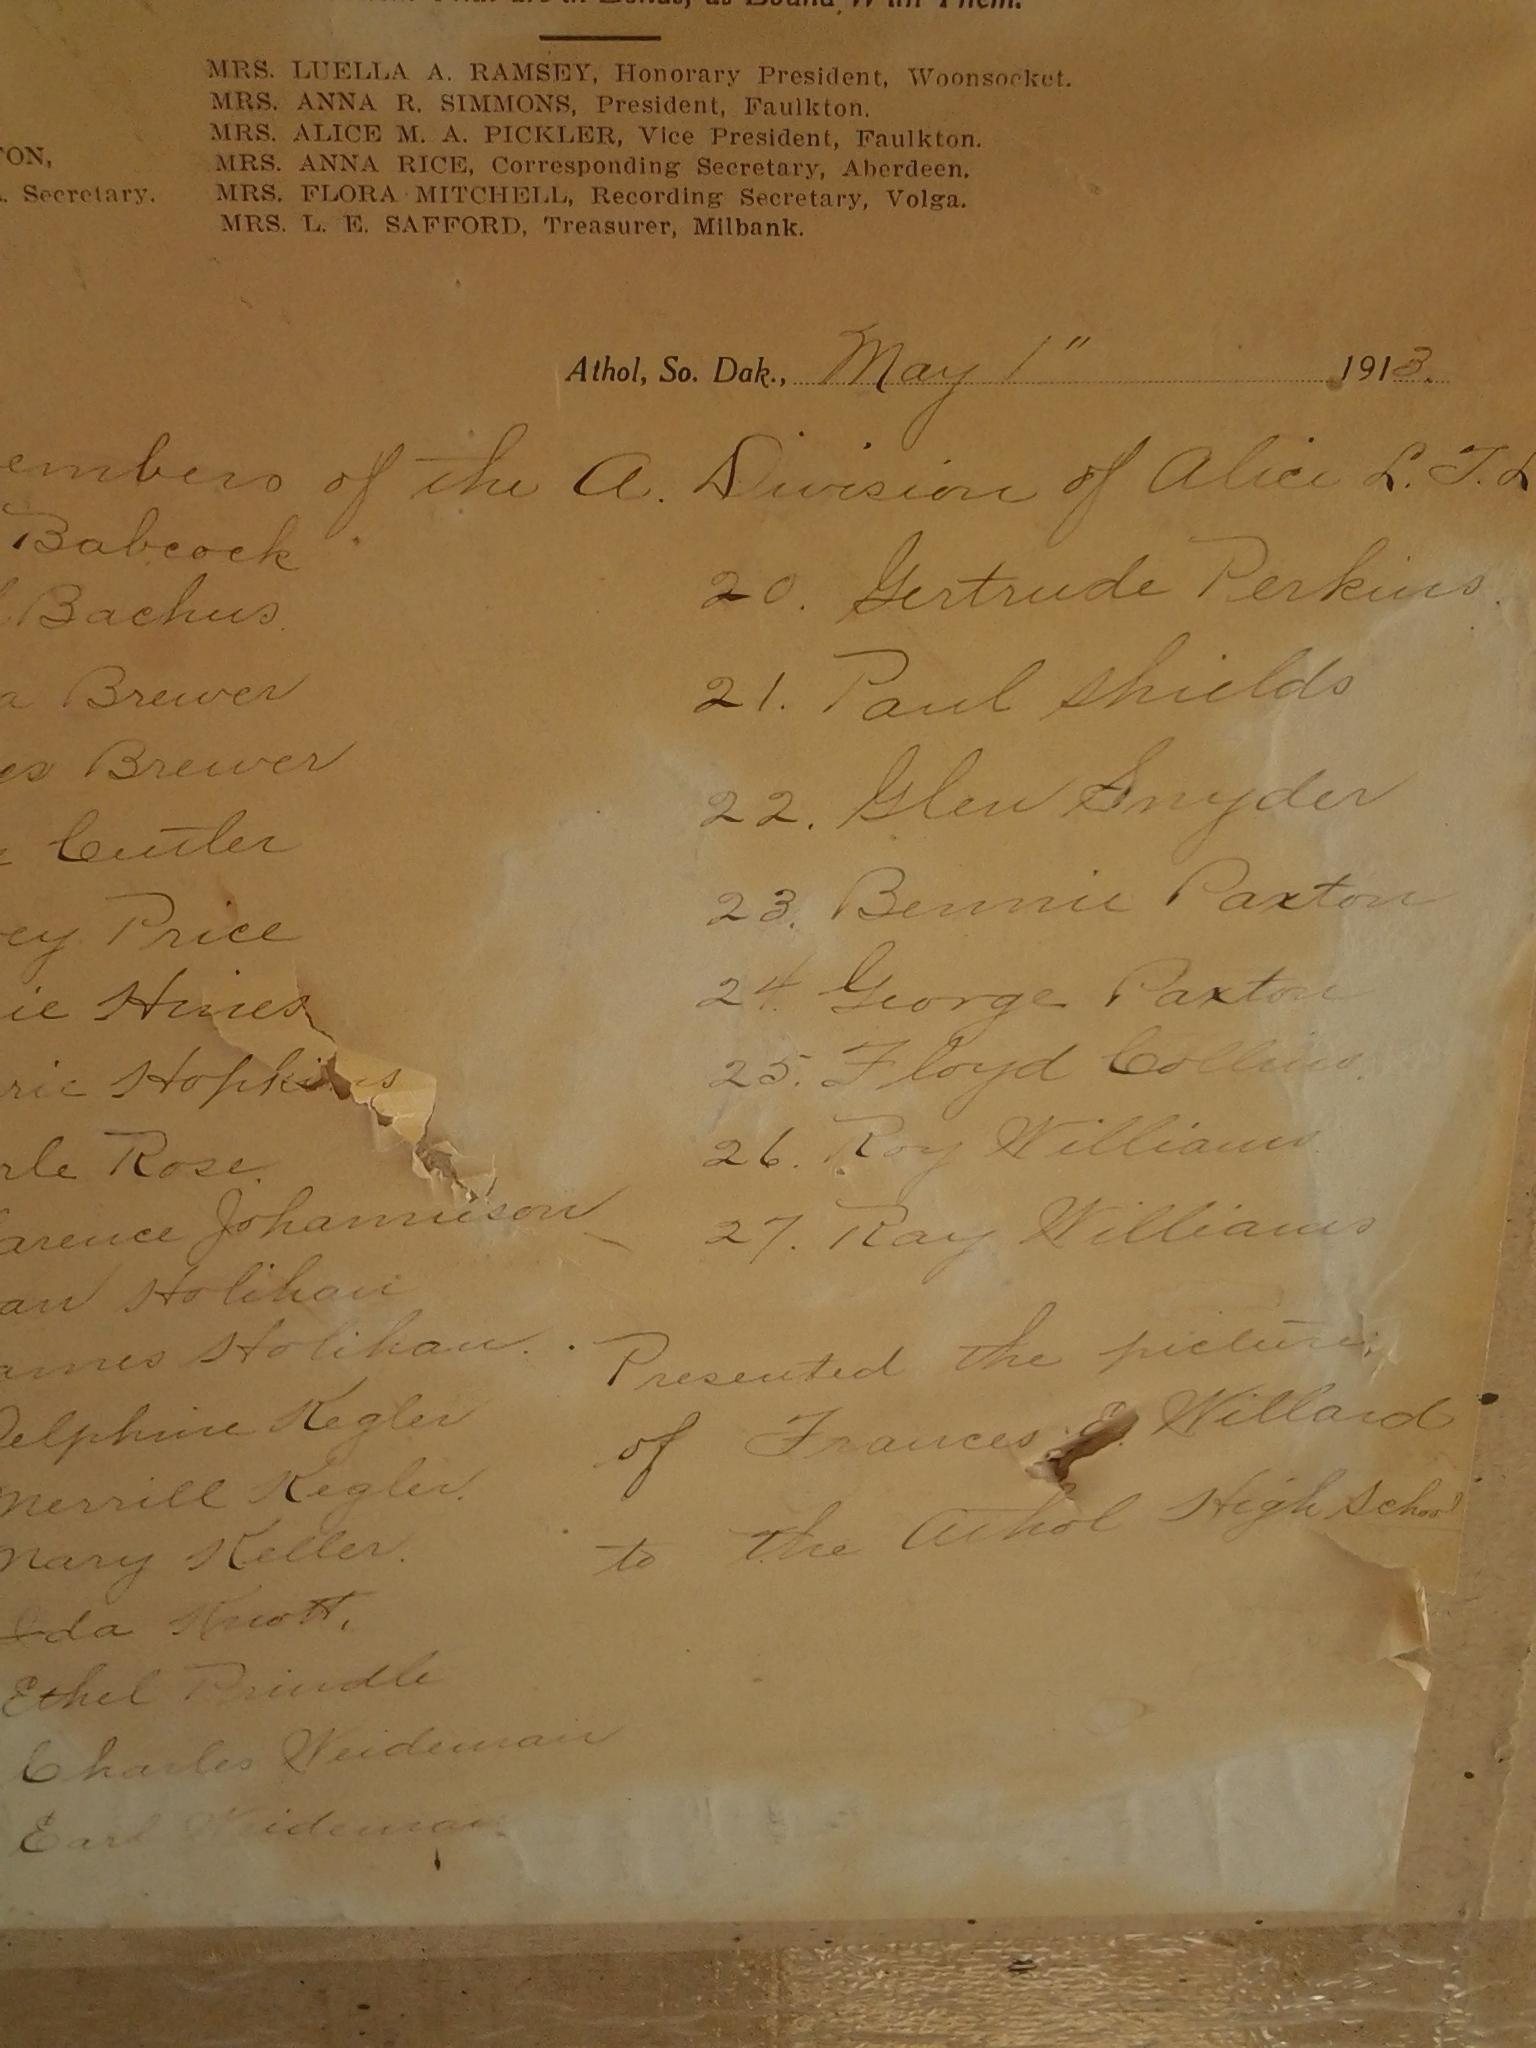 as Bound With Them.
MRS. LUELLA A. RAMSEY, Honorary President, Woonsocket.
MRS. ANNA R. SIMMONS, President, Faulkton.
MRS. ALICE M. A. PICKLER, Vice President, Faulkton.
TON,
MRS. ANNA RICE, Corresponding Secretary, Aberdeen.
. Secretary.
MRS. FLORA MITCHELL, Recording Secretary, Volga.
MRS. L. E. SAFFORD, Treasurer, Milbank.
Athol, So. Dak., May 1" 1913.
embers of the A. Division of Alice L. T. L
Babcock
Bachus.
a Brewer
es Brewer
Cutler
ey Price
ie Hines
rie Hopkins
rle Rose.
arence Johannieson
an Holihan
ames Holihan.
Delphine Kegler
Merrill Kegler.
Mary Keller.
Ida Knott.
Ethel Prindle
Charles Weideman
Earl Weideman
20. Gertrude Perkins.
21. Paul Shields
22. Glen Snyder
23. Bennie Paxton
24. George Paxton
25. Floyd Collins.
26. Roy Williams
27. Ray Williams
Presented the picture,
of Frances E. Willard
to the Athol High School